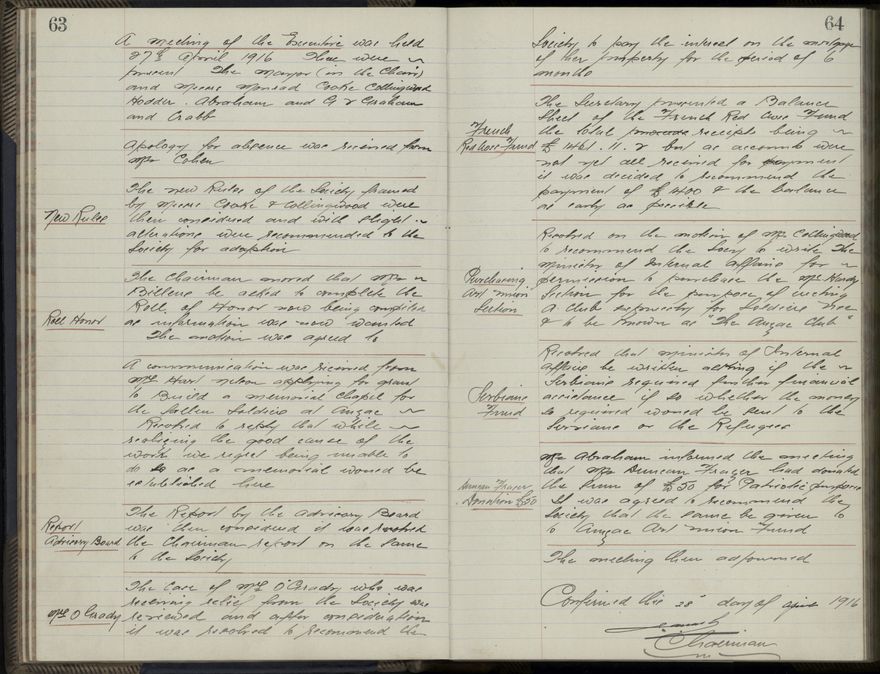 63
A meeting of the Executive was held
27th April 1916 There were
present The Mayor (in the Chair)
and Messrs Monrad Cooke Collingwood
Hodder. Abraham and G & Graham
and Crabb
Apology for absence was received from
Mr Cohen
New Rules
The new Rules of the Society framed
by Messrs Cooke & Collingwood were
then considered and with slight
alterations were recommended to the
Society for adoption
Roll Honor
The Chairman moved that Mr
Billens be asked to complete the
Roll of Honor now being compiled
as information was now wanted
The motion was agreed to
A communication was received from
Mrs Hart Nelson applying for grant
to Build a memorial Chapel for
the fallen Soldiers at Anzac
Resolved to reply that while
realizing the good cause of the
work we regret being unable to
do so as a memorial would be
established here
Report
Advisory Board
The Report by the Advisory Board
was then considered it was resolved
the Chairman report on the same
to the Society
Mrs O'Grady
The Case of Mrs O'Grady who was
receiving relief from the Society was
reviewed and after consideration
it was resolved to recommend the
64
Society to pay the interest on the mortgage
of her property for the period of 6
months
French
Red Cross Fund
The Secretary presented a Balance
Sheet of the French Red Cross Fund
the total receipts being
£ 4461. 11. 2 but as accounts were
not yet all received for payment
it was decided to recommend the
payment of £ 4400 & the balance
as early as possible
Purchasing
Art Union
Section
Resolved on the motion of Mr Collingwood
to recommend the Socy to write The
Minister of Internal Affairs for
permission to purchase the Mrs Hardy
Section for the purpose of erecting
a Club expressly for Soldiers use
& to be known as "The Anzac Club"
Serbians
Fund
Resolved that Minister of Internal
Affairs be written asking if the
Serbians required further financial
assistance if so whether the money
so required would be sent to the
Servians or the Refugees
Duncan Fraser
Donation £50
Mr Abraham informed the meeting
that Mr Duncan Frazer had donated
the sum of £50 for Patriotic purposes
It was agreed to recommend the
Society that the same be given to
to Anzac Art Union Fund
The meeting then adjourned
Confirmed this 28" day of April 1916
Chairman